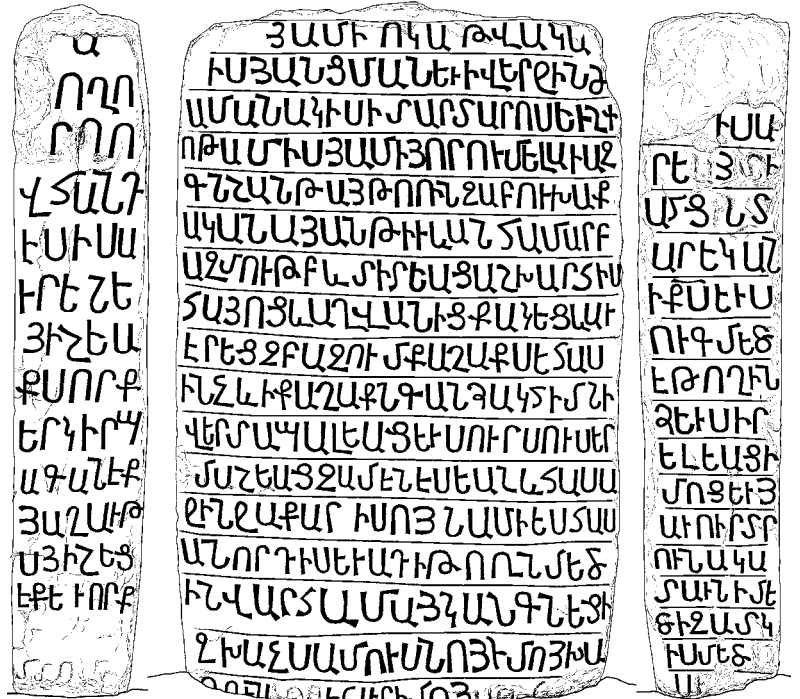 Ա
ՈՂՈ
ՐՈՂՈ
ՎՏԱՆԴ
ԷՍԻՍԱ
ԻՐԵԶԵ
ՅԻՇԵԱ
ՔՍՈՐՔ
ԵՐԿԻՐՊ
ԱԳԱՆԷՔ
ՅԱՂԱՒԹ
ՍՅԻՇԵՑ
ԷՔԵՒՈՐՔ
ՅԱՄԻ ՈԿԱ ԹՎԱԿԱ
ԻՍՅԱՆՑՄԱՆԵՒԻՎԵՐՋԻՆԺ
ԱՄԱՆԱԿԻՍԻՄԱՐՏԱՐՈՍԵԻՆՉ
ՈԹԱՄԻՍՅԱՄԻՅՈՐՈՒՄԵԼԱՒԱԶ
ԳՆՆՇԱՆԹԱՅԹՈՌՆԶԱԲՈՒԽԱՔ
ԱԿԱՆԱՅԱՆԹԻՒԱՆՀԱՄԱՐԲ
ԱԶՄՈՒԹԲԵՒՄԻՐԵԱՑԱՇԽԱՐՀԻՍ
ՀԱՅՈՑԵՒԱՂՎԱՆԻՑՔԱԿԵՑԵՒԱՒ
ԷՐԵՑԶԲԱԶՈՒՄՔԱՂԱՔՍԷՀԱՍ
ԻՆՉԵՒԻՔԱՂԱՔՆԳԱՆՁԱԿՏԻՄՆԻ
ՎԵՐՄԱՊԱԼԵԱՑԵՒՍՈՒՐՍՈՒՍԵՐ
ՄԱՇԵԱՑԶԱՄԷՆԷՍԵԱՆԵՒՀԱՍԱ
ՋԻՆՋԱՔԱՐ ԻՍՈՅ ՆԱՄԻԵՍՏԱՍ
ԱՆՈՐԴԻՍԵՒԱԴԻԹՈՂՆՄԵԾ
ԻՆՎԱՐՀԱՄԱՅԿԱՆԳՆԵՑԻ
ԶԽԱՉՍԱՄՈՒՍՆՈՅԻՄՈՅԽԱ
ԻՍԱ
ՐԵ Յ ՄԻ
ԱՄՑ ՆՏ
ԱՐԵԿԱՆ
ԻՔՍԵՒՍ
ՈՒԳՄԵԾ
ԷԹՈՂԻՆ
ՁԵՒՍԻՐ
ԵԼԵԱՑԻ
ՄՈՑԵՒՅ
ԱՒՈՒՐՄՐ
ՈՒՆԱԿԱ
ՄԱՒՆԻՄԷ
ԾԻԶԱՄԿ
ԻՍՄԵԾ